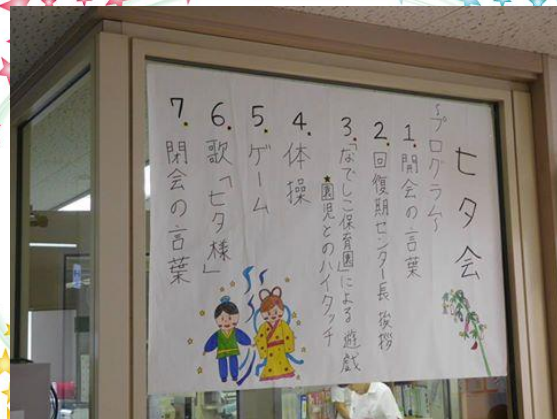 七夕会
~プログラム~
1. 開会の言葉
2. 回復期センター長 挨拶
3.「なでしこ保育園」による 遊戯
★園児とのハイタッチ
4. 体操
5. ゲーム
6. 歌「七夕様」
7. 閉会の言葉